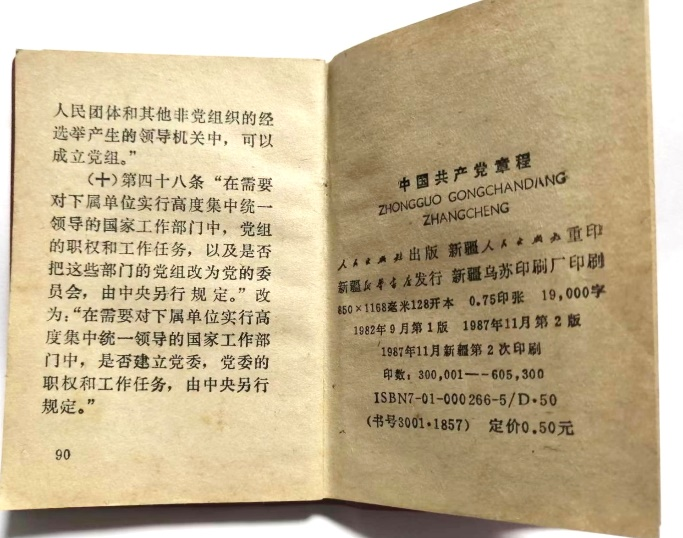 人民团体和其他非党组织的经
选举产生的领导机关中，可以
成立党组。”
(十)第四十八条“在需要
对下属单位实行高度集中统一
领导的国家工作部门中，党组
的职权和工作任务，以及是否
把这些部门的党组改为党的委
员会，由中央另行规定。”改
为:“在需要对下属单位实行高
度集中统一领导的国家工作部
门中，是否建立党委，党委的
职权和工作任务，由中央另行
规定。”
90
中国共产党章程
ZHONGGUO GONGCHANDANG
ZHANGCHENG
人民出版社出版 新疆人民出版社重印
新疆新华书店发行 新疆乌苏印刷厂印刷
850×1168毫米128开本 0.75印张 19,000字
1982年9月第1版 1987年11月第2版
1987年11月新疆第2次印刷
印数: 300,001——605,300
ISBN7-01-000266-5/D·50
(书号3001·1857) 定价0.50元